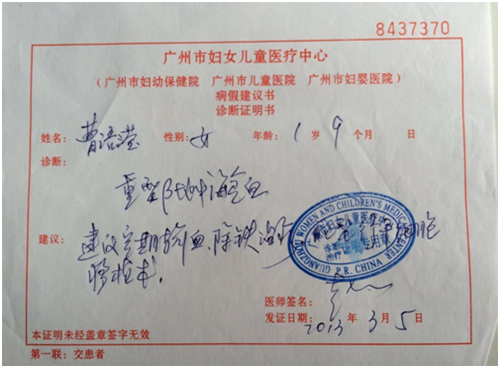 8437370
广州市妇女儿童医疗中心
（广州市妇幼保健院 广州市儿童医院 广州市妇婴医院）
病假建议书
诊断证明书
姓名：曹语莹 性别：女 年龄：1岁9个月 日
诊断：
重型β地中海贫血
建议：建议定期输血、除铁治疗 胞
移植术。
GUANGZHOU WOMEN AND CHILDREN'S MEDICAL CENTER
P.R. CHINA
医师签名：
发证日期：2013年3月5日
本证明未经盖章签字无效
第一联：交患者